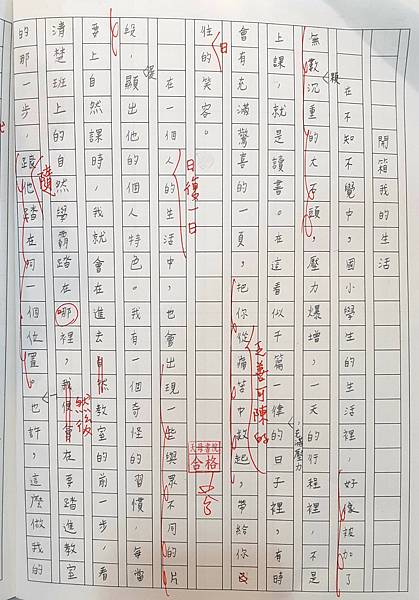 開箱我的生活
在不知不覺中，國小學生的生活裡，好像被加了
顆
無數沉重的大石頭，壓力爆增，一天的行程裡，不是
上課，就是讀書。在這看似千篇一律的日子裡，有時
乏善可陳的
會有充滿驚喜的一頁，把你從痛苦中救起，帶給你
往的笑容。
日
日復一日
合格
在一個人的生活中，也會出現一些與眾不同的片
段，顯出他的個人特色。我有一個奇怪的習慣，每當
要上自然課時，我就會在進去自然教室的前一步，看
清楚班上的自然學霸踏在哪裡，我便會在踏進教室
然後
的那一步，讓他踏在同一個位置。也許，這麼做我的